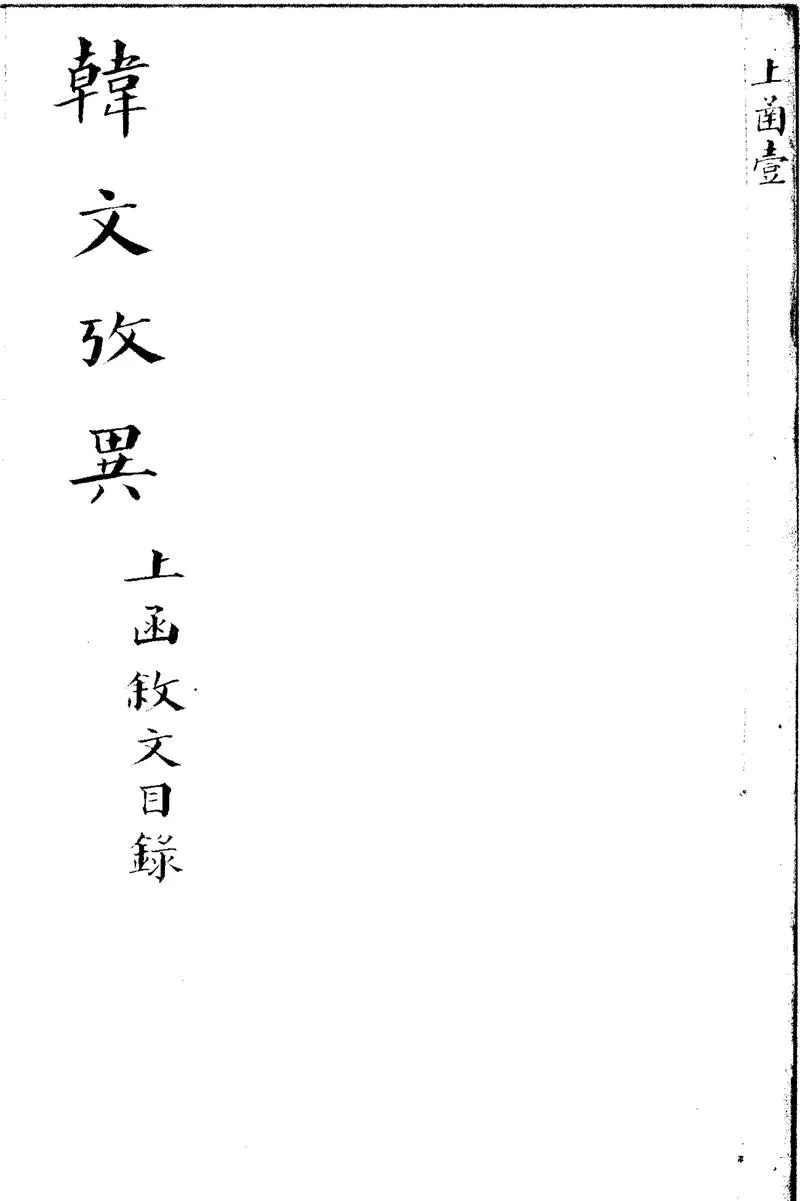 上菡壹
韓文攷異
上函敘文目錄